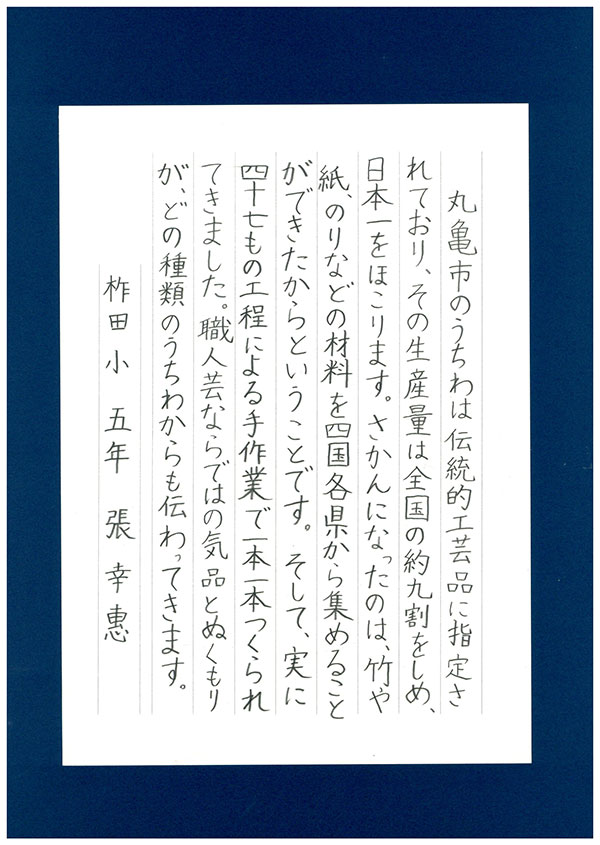 丸亀市のうちわは伝統的工芸品に指定さ
れており、その生産量は全国の約九割をしめ、
日本一をほこります。さかんになったのは、竹や
紙、のりなどの材料を四国各県から集めること
ができたからということです。そして、実に
四十七もの工程による手作業で一本一本つくられ
てきました。職人芸ならではの気品とぬくもり
が、どの種類のうちわからも伝わってきます。
柞田小 五年 張幸惠